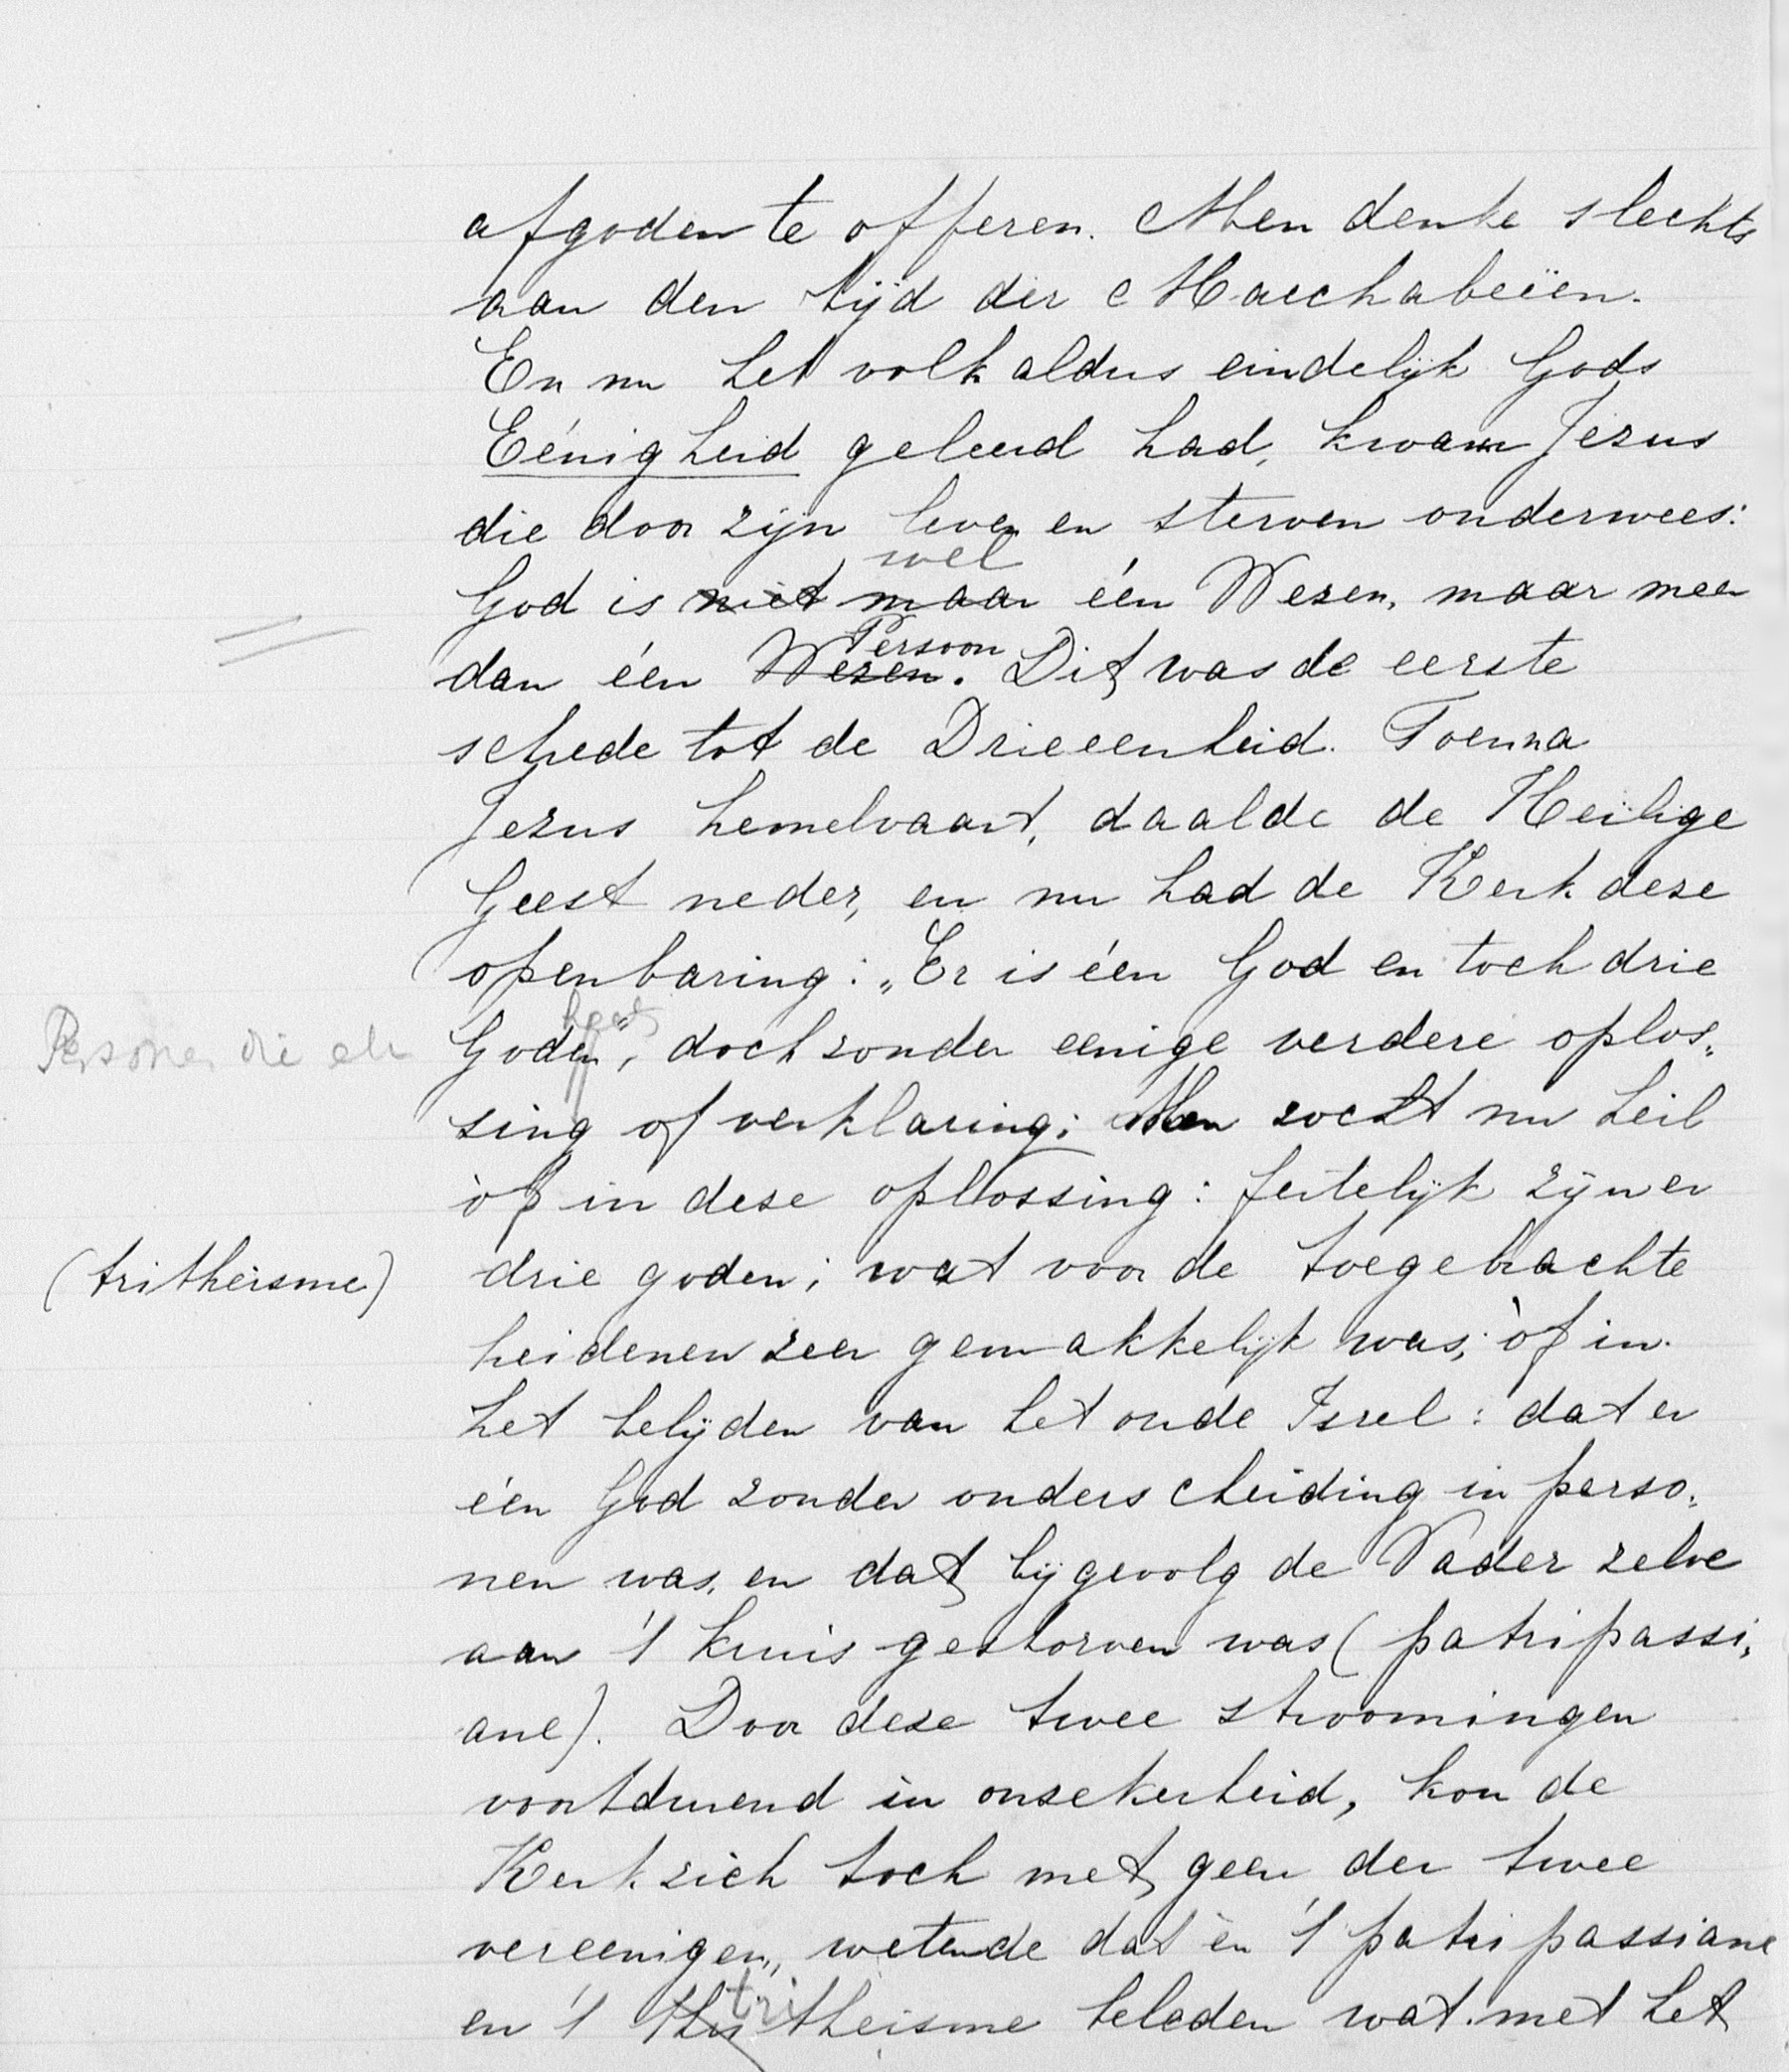 afgoden te offeren. Men denke slechts
aan den tijd der Macchabeïen.
En nu het volk aldus eindelijk Gods
Eénigheid geleerd had, kwam Jezus
die door zijn leven en sterven onderwees:
wel
God is niet maar één Wezen, maar meer
Persoon
dan één Wezen. Dit was de eerste
schrede tot de Drieeenheid. Toen na
Jezus hemelvaart, daalde de Heilige
Geest neder, en nu had de Kerk deze
openbaring: „Er is één God en toch drie
Personen die elk
Goden", doch zonder eenige verdere oplos„
sing of verklaring; Men zocht nu heil
òf in deze oplossing: feitelijk zijn er
(tritheïsme)
drie goden; wat voor de toegebrachte
heidenen zeer gemakkelijk was; òf in
het belijden van het oude Isrel: dat er
één God zonder onderscheiding in perso„
nen was, en dat bijgevolg de Vader zelve
aan 't kruis gestorven was (patripassi„
ane). Door deze twee stroomingen
voortdurend in onzekerheid, kon de
Kerk zich toch met geen der twee
vereenigen, wetende dat èn 't patripassiane
tri
en 't theisme beleden wat met het